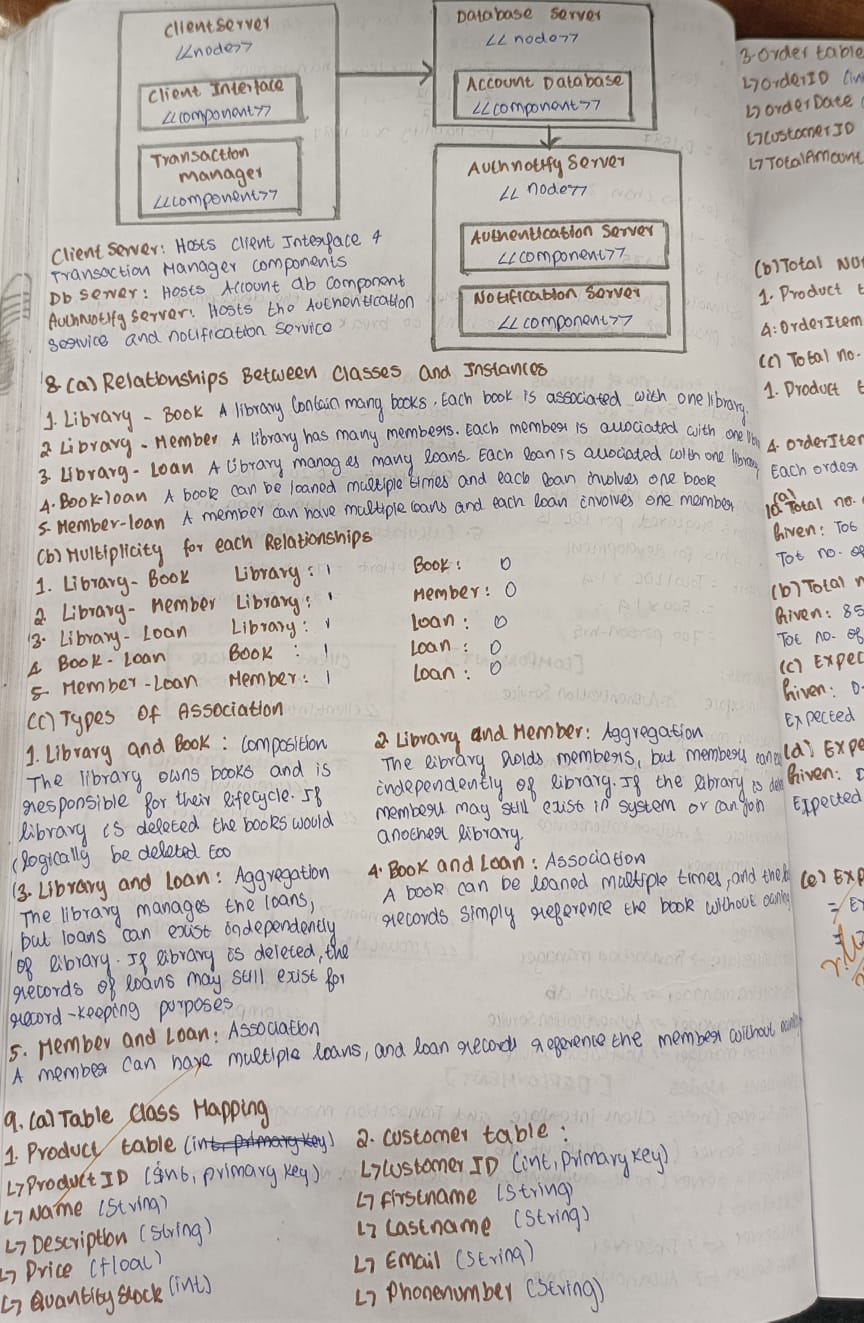 Client Server
<<node>>
Client Interface
<<component>>
Transaction
manager
<<component>>
Database Server
<<node>>
Account Database
<<component>>
Authnotify Server
<<node>>
Authentication Server
<<component>>
Notification Server
<<component>>
Client Server: Hosts Client Interface &
Transaction Manager components
Db Server: Hosts Account db component
AuthNotify Server: Hosts the Authentication
service and notification service
8. (a) Relationships Between Classes and Instances
1. Library - Book A library Contain many books. Each book is associated with one library.
2 Library - Member A library has many members. Each member is associated with one
3. Library - Loan A Library manages many loans. Each loan is associated with one library
4. Book-loan A book can be loaned multiple times and each loan involves one book
5. Member-loan A member can have multiple loans and each loan involves one member
(b) Multiplicity for each Relationships
1. Library - Book Library : 1 Book : 0
2 Library - Member Library : 1 Member : 0
3. Library - Loan Library : 1 Loan : 0
4 Book - Loan Book : 1 Loan : 0
5- Member - Loan Member : 1 Loan : 0
(C) Types Of Association
1. Library and Book : Composition
The library owns books and is
responsible for their lifecycle. If
library is deleted the books would
logically be deleted too
2 Library and Member: Aggregation
The library holds members, but members
independently of library. If the library is
members may still exist in system or can join
another library.
3. Library and Loan: Aggregation
The library manages the loans,
but loans can exist independently
of library. If library is deleted, the
records of loans may still exist for
record-keeping purposes
4. Book and Loan: Association
A book can be loaned multiple times, and the
records simply reference the book without
5. Member and Loan: Association
A member can have multiple loans, and loan records reference the member without
9. (a) Table Class Mapping
1. Product table (int, primary key)
↳ Product ID (int, primary key)
↳ Name (String)
↳ Description (String)
↳ Price (float)
↳ Quantity Stock (int)
2. Customer table :
↳ Customer ID (int, Primary key)
↳ Firstname (String)
↳ Lastname (String)
↳ Email (String)
↳ Phonenumber (String)
3. Order table
↳ OrderID (in
↳ OrderDate (
↳ CustomerID
↳ TotalAmount
(b) Total No
1. Product t
4: OrderItem
(c) Total no.
1. Product t
4. OrderIte
Each order
10 (a) Total no.
Given: Tot
Tot no. of
(b) Total n
Given: 85
Tot no. of
(c) Expec
Given: 0
Expected
(d) Expe
Given:
Expected
(e) Exp
= E